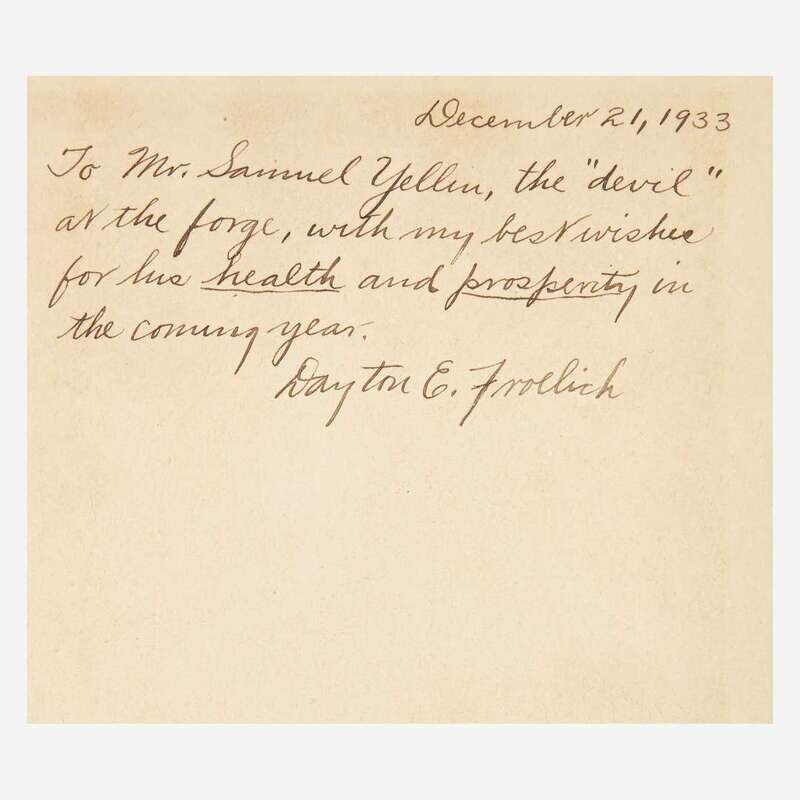 December 21, 1933
To Mr. Samuel Yellin, the "devil"
at the forge, with my best wishes
for his health and prosperity in
the coming year.
Dayton E. Froelich